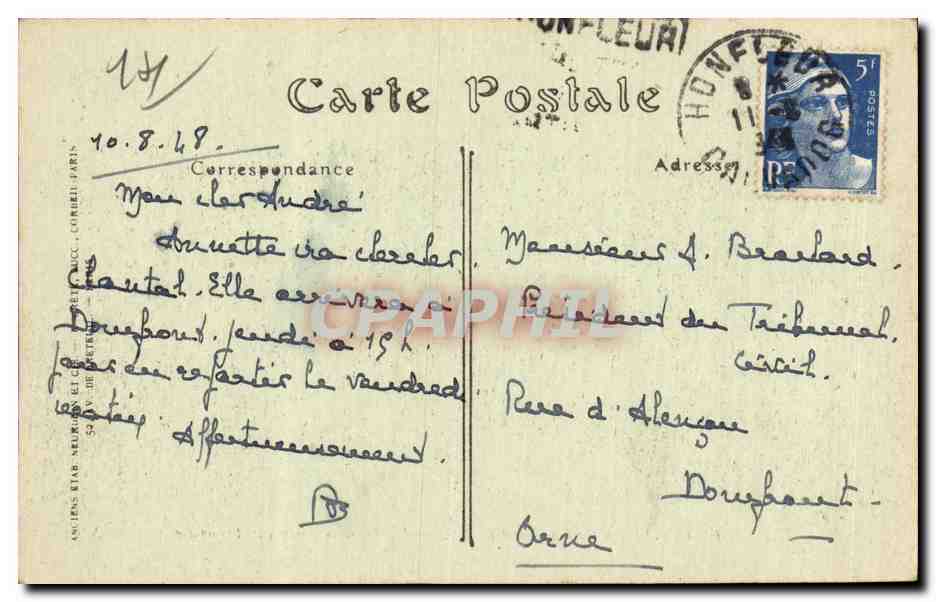 HONFLEUR
Carte Postale
HONFLEUR
CALVADOS
5F
POSTES
RF
10.8.48.
Correspondance
Adresse
Mon cher André
Annette ira chercher
Chantal. Elle arrivera à
Domfront. jeudi à 15h.
Pour en repartir le vendredi
matin. Affectueusement.
Monsieur A. Brochard.
Président du Tribunal
Civil.
Rue d'Alençon
Domfront-
Orne
ANCIENS ETAB. NEURDEIN ET CIE
CORBEIL-PARIS
CPAPHIL